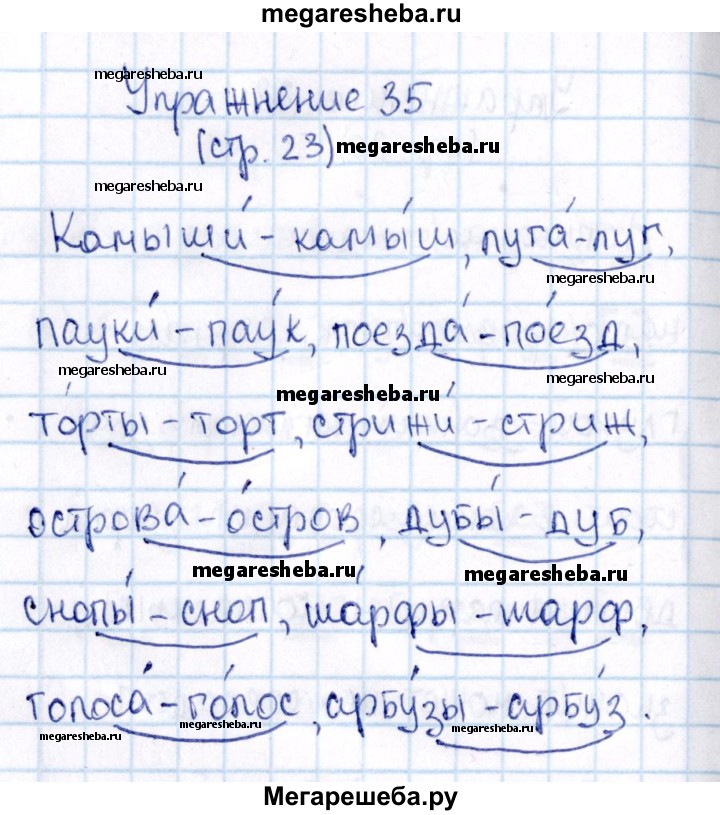 megaresheba.ru
megaresheba.ru
Упражнение 35
(стр. 23) megaresheba.ru
megaresheba.ru
Камыши́ - камы́ш, луга́ - луг,
megaresheba.ru
пауки́ - пау́к, поезда́ - по́езд,
megaresheba.ru megaresheba.ru
megaresheba.ru
то́рты - торт, стрижи́ - стриж,
острова́ - о́стров, дубы́ - дуб,
megaresheba.ru megaresheba.ru
снопы́ - сноп, ша́рфы - шарф,
голоса́ - го́лос, арбу́зы - арбу́з.
megaresheba.ru megaresheba.ru megaresheba.ru
Мегарешеба.ру